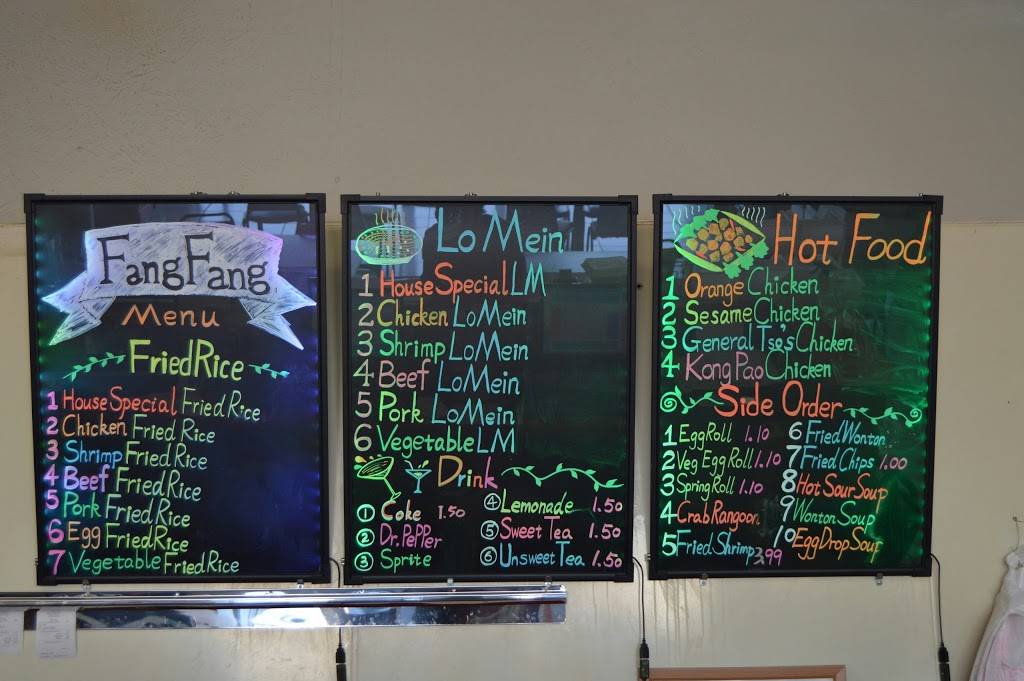 FangFang
Menu
FriedRice
1 House Special Fried Rice
2 Chicken Fried Rice
3 Shrimp Fried Rice
4 Beef Fried Rice
5 Pork Fried Rice
6 Egg Fried Rice
7 Vegetable Fried Rice
Lo Mein
1 House Special LM
2 Chicken Lo Mein
3 Shrimp Lo Mein
4 Beef Lo Mein
5 Pork Lo Mein
6 Vegetable LM
Drink
1 Coke 1.50
2 Dr. PePPer
3 Sprite
4 Lemonade 1.50
5 Sweet Tea 1.50
6 Unsweet Tea 1.50
Hot Food
1 Orange Chicken
2 Sesame Chicken
3 General Tso's Chicken
4 Kong Pao Chicken
Side Order
1 Egg Roll 1.10
2 Veg Egg Roll 1.10
3 Spring Roll 1.10
4 Crab Rangoon
5 Fried Shrimp 3.99
6 Fried Wonton
7 Fried Chips 1.00
8 Hot Sour Soup
9 Wonton Soup
10 Egg Drop Soup